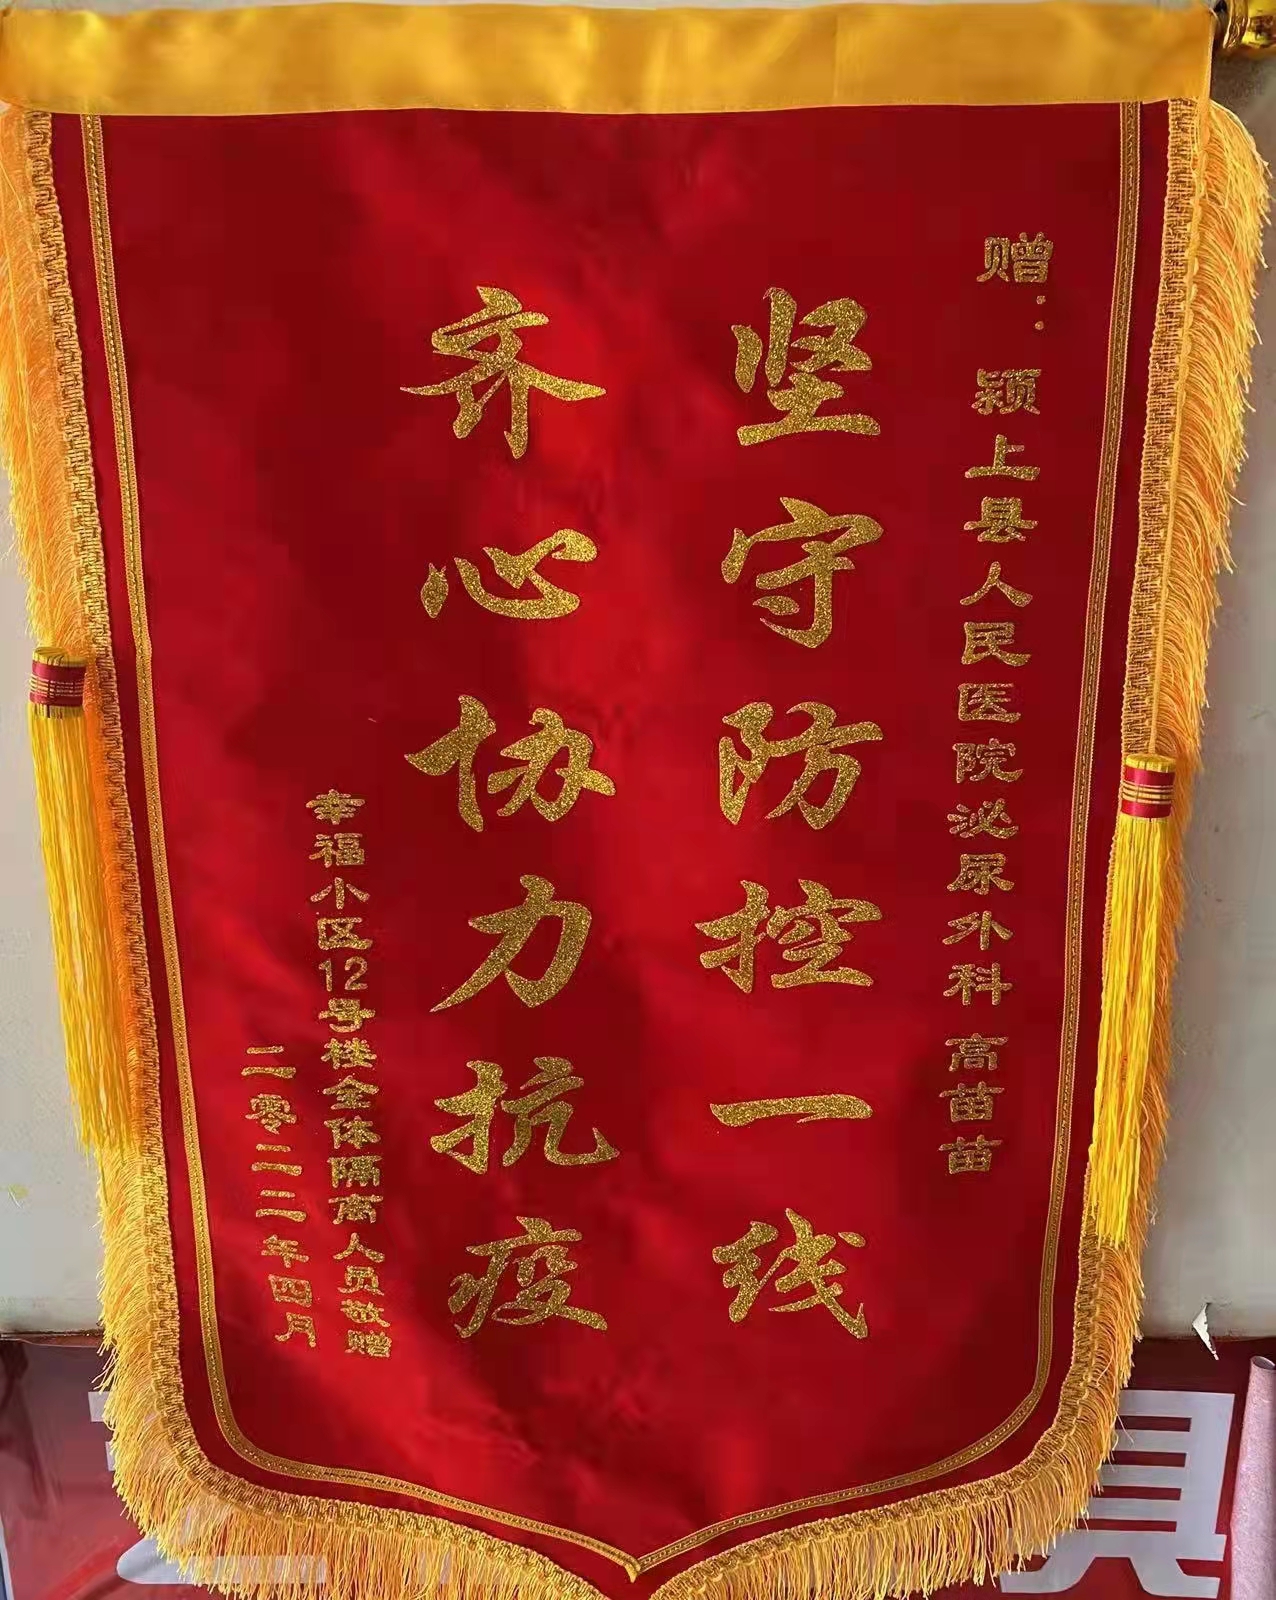 赠：颍上县人民医院泌尿外科 高苗苗
坚守防控一线
齐心协力抗疫
幸福小区12号楼全体隔离人员敬赠
二零二二年四月